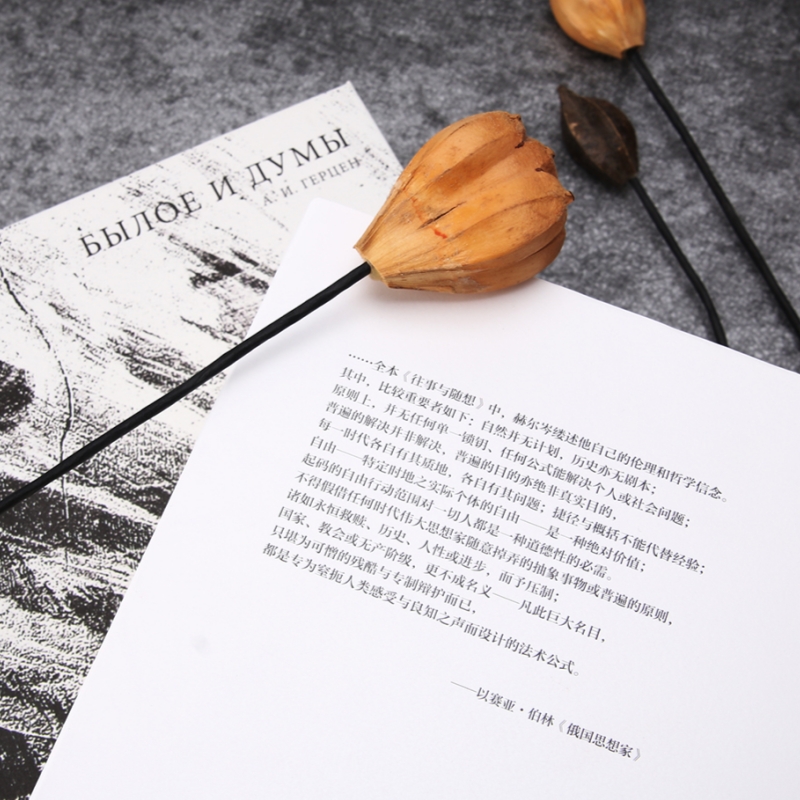 БЫЛОЕ И ДУМЫ
А. И. ГЕРЦЕН
……全本《往事与随想》中，赫尔岑缕述他自己的伦理和哲学信念。
其中，比较重要者如下：自然并无计划，历史亦无剧本；
原则上，并无任何单一锁钥、任何公式能解决个人或社会问题；
普遍的解决并非解决，普遍的目的亦绝非真实目的，
每一时代各自有其质地，各自有其问题；捷径与概括不能代替经验；
自由——特定时地之实际个体的自由——是一种绝对价值；
起码的自由行动范围对一切人都是一种道德性的必需。
不得假借任何时代伟大思想家随意掉弄的抽象事物或普遍的原则，
诸如永恒救赎、历史、人性或进步，而予压制；
国家、教会或无产阶级，更不成名义——凡此巨大名目，
只堪为可憎的残酷与专制辩护而已，
都是专为窒扼人类感受与良知之声而设计的法术公式。
——以赛亚·伯林《俄国思想家》